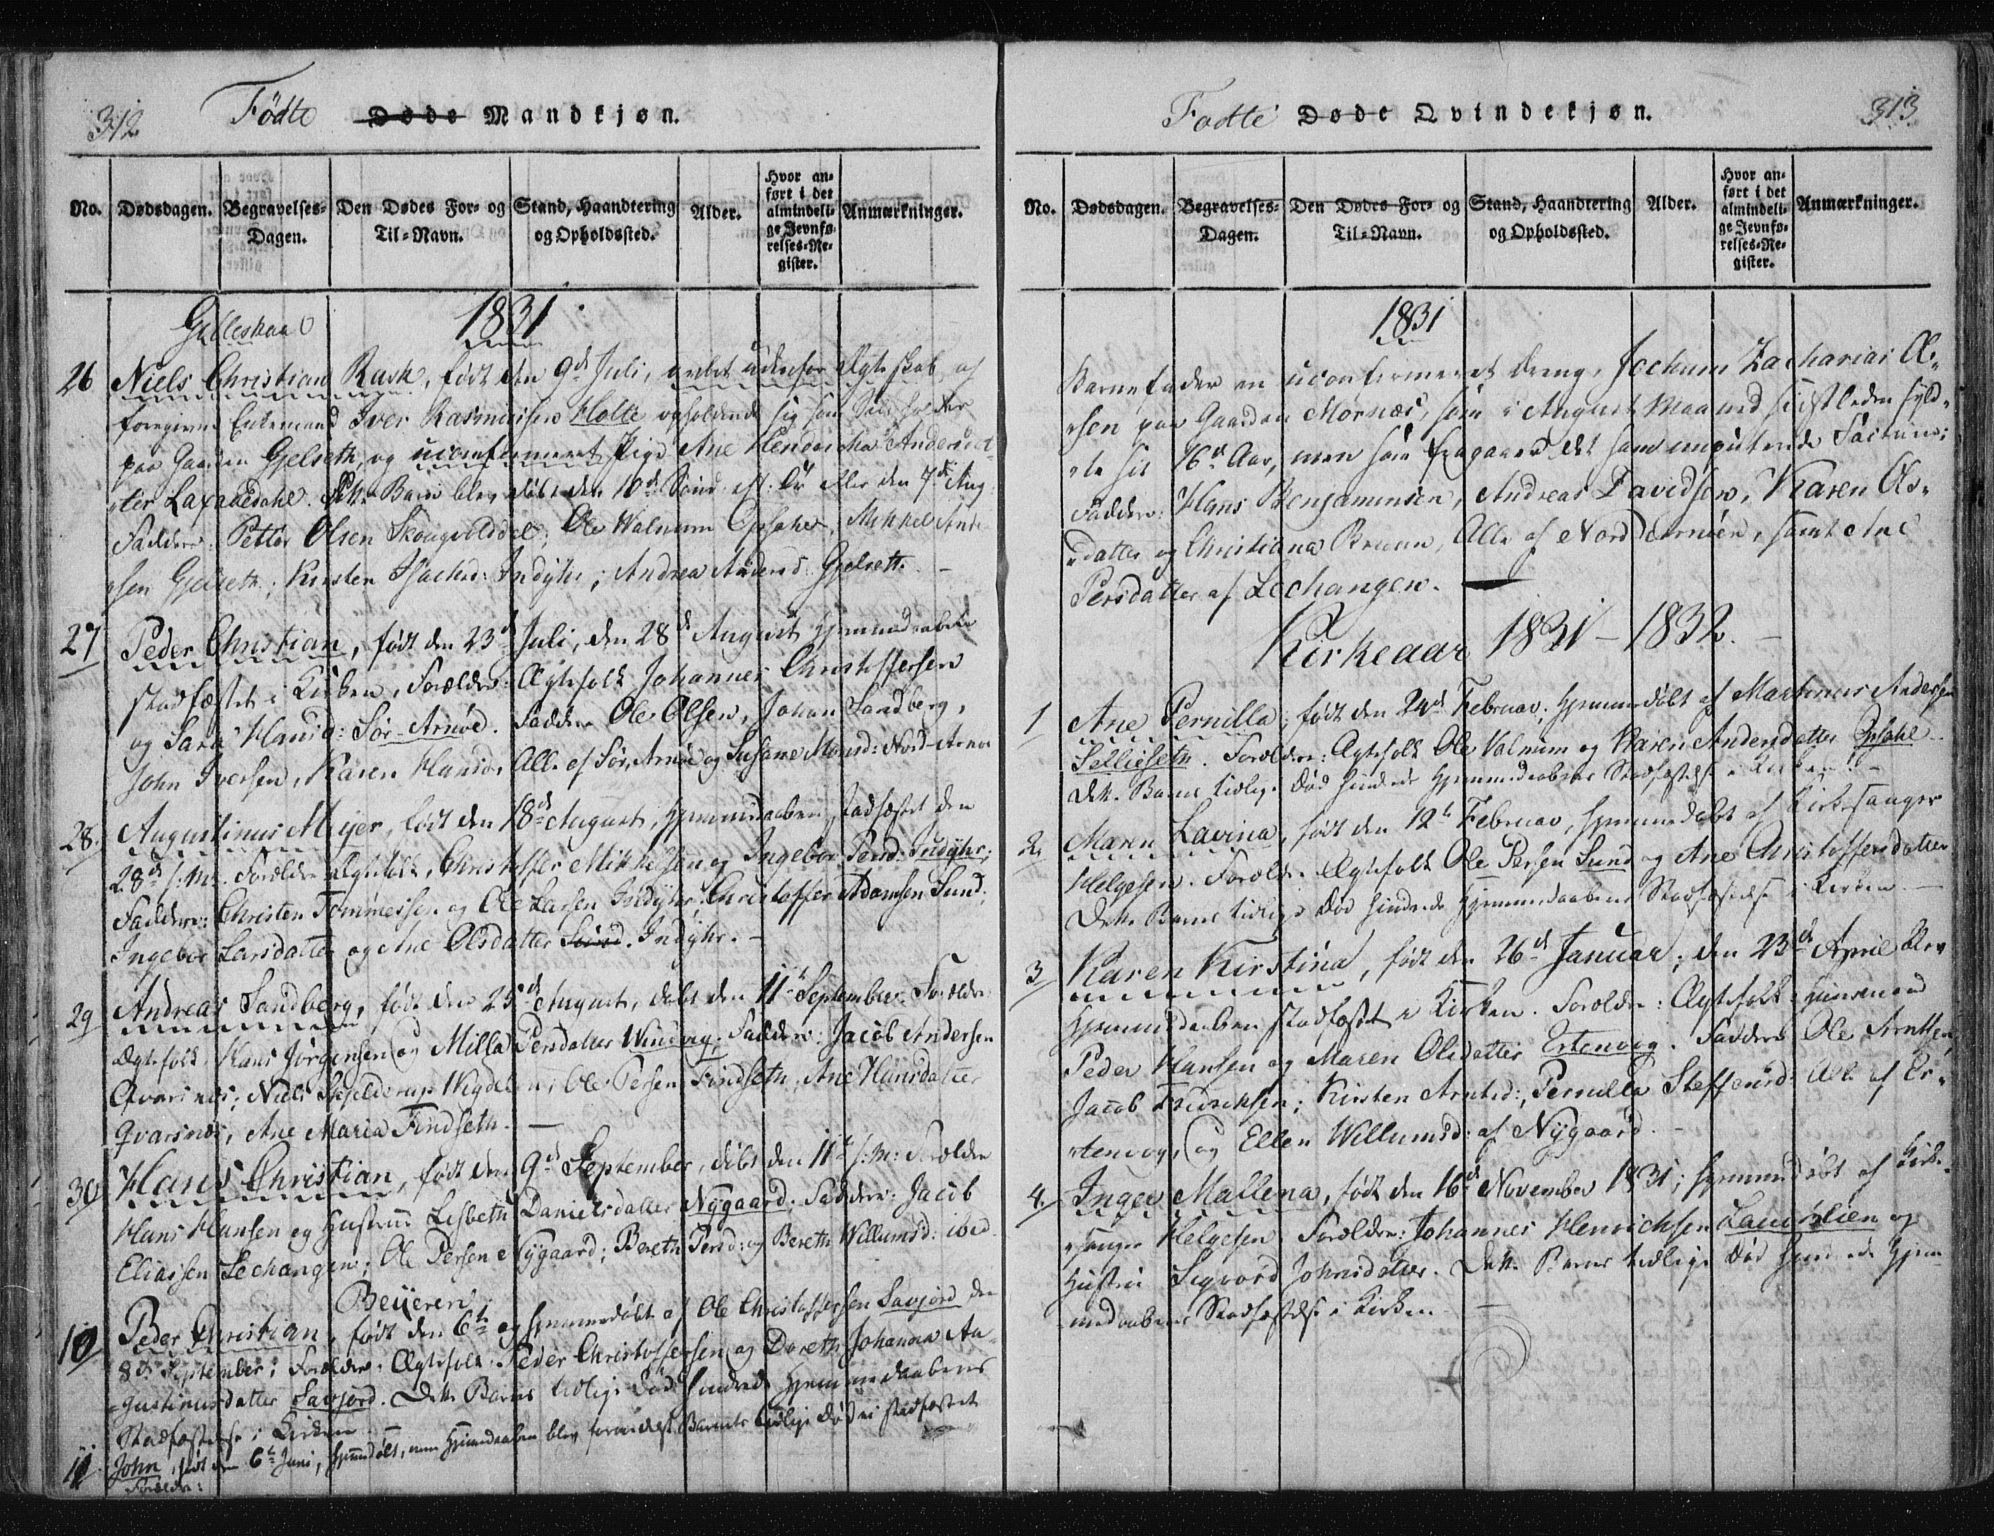 312
Födte Døde Mandkjøn.
No. Dødsdagen. Begravelses-Dagen. Den Dødes For- og Til-Navn. Stand, Haandtering og Opholdssted. Alder. Hvor anført i det almindelige Jevnførelses-Register. Anmærkninger.
Gilleskaal 1831
26 Niels Christian Rask, født den 9de Juli, avlet udenfor Ægteskab, af
foregivne Enkemand Iver Rasmussen Holte opholdende sig som
paa Gaarden Gjelseth, og uconfirmeret Pige Ane Hendricha Andersdat-
ter Laxaaedahl. Dette Barn blev døbt den 10de Sønd. eft. Tr. eller den 7de Aug.
Faddere: Petter Olsen Skougvolddal; Ole Walnum Opsahl, Mikkel Ande
rsen Gjelseth; Kirsten Isachsd: Indyhr; Andrea Andersd: Gjelseth. –
27 Peder Christian, født den 23de Juli, den 28de August Hjemmedaaben
stadfæstet i Kirken. Forældre: Ægtefolk Johannes Christoffersen
og Sara Hansd: Sør-Arnøe. Faddere Ole Olsen, Johan Sandberg,
John Iversen, Karen Hansd. Alle af Sør-Arnøe og Susane Monsd: Nord-Arnøe
28. Augustinus Meijer, født den 18de August, Hjemmedaaben stadfæstet den
28de s: M. Forældre Ægtefolk, Christoffer Mikkelsen og Ingebor Persd: Indyhr;
Faddere: Christen Tommessen og Ole Larsen Indyhr. Christoffer Adamsen Sund;
Ingebor Larsdatter og Ane Olsdatter Sund. Indyhr. –
29 Andreas Sandberg, født den 25de August, døbt den 11te September. Forældre
Ægtefolk Hans Jørgensen og Milla Persdatter Windvig. Faddere: Jacob Andersen
Qvarsnæs; Niels Skjelderup Wigdelen; Ole Persen Findseth, Ane Hansdatter
Qvarsnæs, Ane Maria Findseth. –
30 Hans Christian, født den 9de September, døbt den 11te s: M: Forældre
Hans Hansen og Hustrue Lisbeth Danielsdatter Nygaard; Faddere: Jacob
Eliassen Lechangen; Ole Persen Nygaard; Bereth Persd: og Bereth Willumsd: ibid.
Beijeren
10 Peder Christian, født den 6te og hjemmedøbt af Ole Christoffersen Savjord den
8de September; Forældre: Ægtefolk Peder Christoffersen og Doreth Johanna Au-
gustinusdatter Savjord. Dette Barns tidlige Død hindrede Hjemmedaabens
Stadfæstelse i Kirken. –
11 John, født den 6te Juni, hjemmdøbt, men Hjemdaaben blev formedelst Barnets tidlige Død ei stadfæstet
Forældre:
313
Fødte Døde Qvindekjøn.
No. Dødsdagen. Begravelses-Dagen. Den Dødes For- og Til-Navn. Stand, Haandtering og Opholdssted. Alder. Hvor anført i det almindelige Jevnførelses-Register. Anmærkninger.
1831
Barnefader en uconfirmeret Dreng, Jochum Zacharias Ol-
sen paa Gaarden Mornæs, som i August Maaned sidstleden fyld-
te sit 16de Aar, men som fragaaer det ham imputerede Factum;
Faddere: Hans Benjaminsen, Andreas Davidsen, Karen Ols-
datter og Christiana Bruun, Alle af Nord Arnøen, samt Ane
Persdatter af Lechangen. –
Kirkeaar 1831 – 1832. –
1 Ane Pernilla, født den 24de Februar, hjemmedøbt af Martinus Andersen
Selliseth. Forældre: Ægtefolk Ole Valnum og Karen Andersdatter Opsahl.
Dette Barns tidlige Død hindrede Hjemmedaabens Stadfæstelse i Kirken. –
2. Maren Lavina, født den 12te Februar, hjemmedøbt af Kirkesanger
Helgesen. Forældre Ægtefolk Ole Persen Sund og Ane Christoffersdatter
Dette Barns tidlige Død hindrede Hjemmedaabens Stadfæstelse i Kirken –
3 Karen Kirstina, født den 26de Januar; den 23de April blev
Hjemmedaaben stadfæstet i Kirken. Forældre: Ægtefolk Huusmand
Peder Hansen og Maren Olsdatter Ertenvog. Faddere Ole Arntsen,
Jacob Fridrichsen; Kirsten Arntsd:, Pernilla Steffensd: Alle af Er-
tenvog, og Ellen Willumsd: af Nygaard. –
4. Inger Mallena, født den 16de November 1831; hjemmedøbt af Kirke-
sanger Helgesen. Forældre: Johannes Henrichsen og
Hustru Sigvord Johnsdatter. Dette Barns tidlige Død hindrede Hjem-
medaabens Stadfæstelse i Kirken –